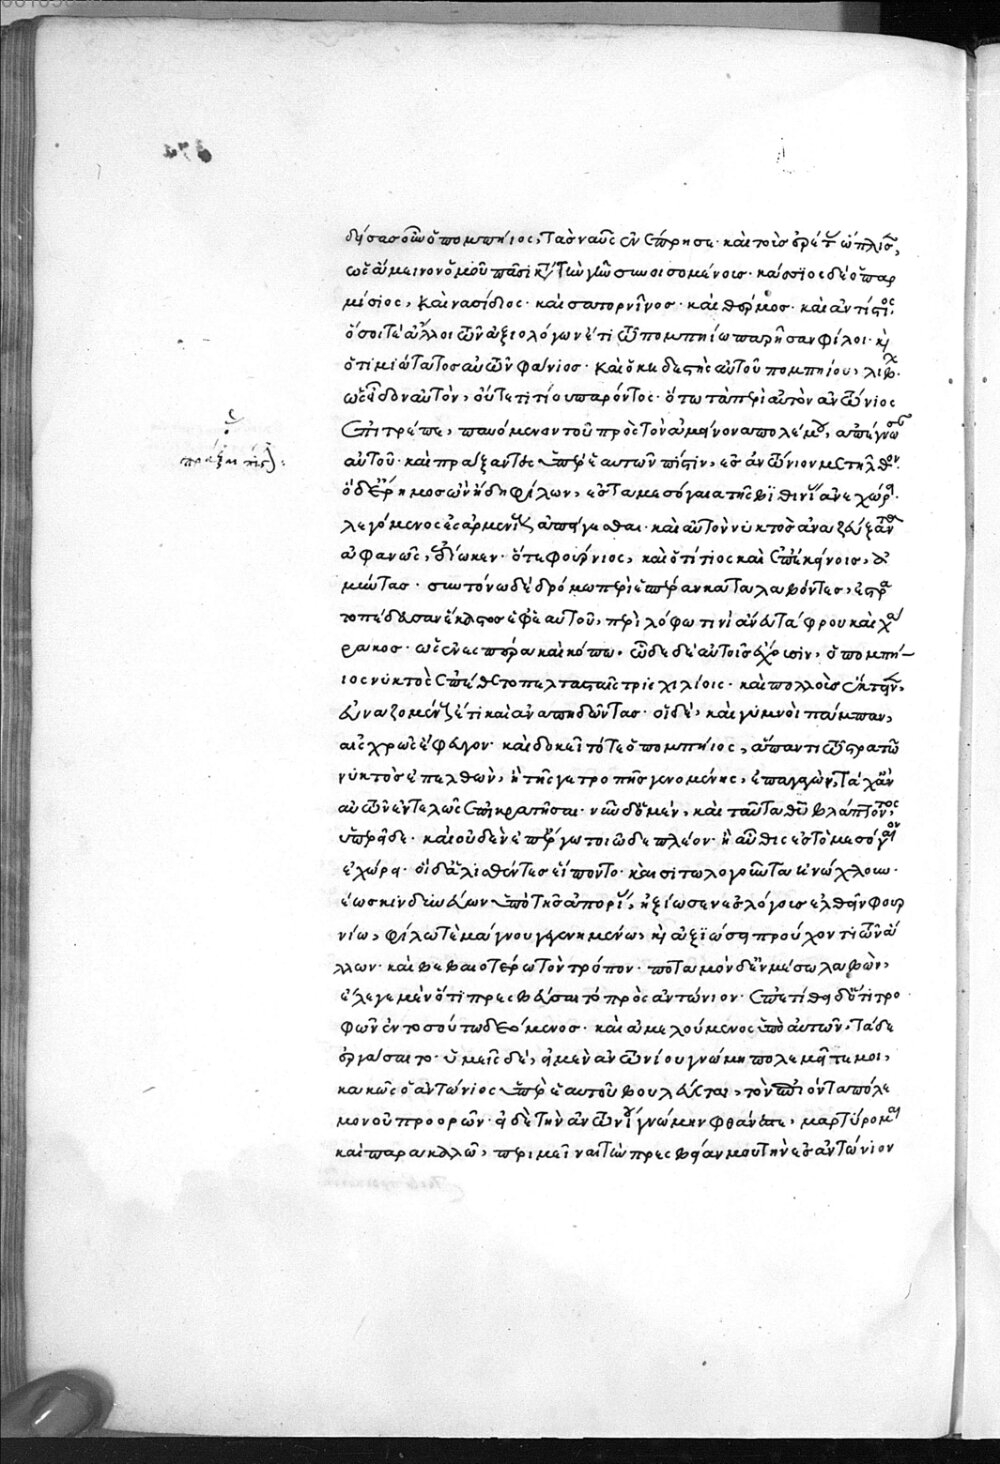 δείσας οὖν ὁ πομπήιος, τὰς ναῦς ἐνέπρησε· καὶ τοὺς ἐρέτας ὥπλισεν,
ὡς ἀμείνονος ὁμοῦ πᾶσι κατὰ τὴν γῆν συνοισομένοις· κάσσιος δὲ ὁ παρ
μέσιος, καὶ νασίδιος· καὶ σατορνῖνος· καὶ θέρμος· καὶ ἀντίστιος·
ὅσοι τὲ ἄλλοι τῶν ἀξιολόγων ἔτι τῷ πομπηίῳ παρῆσαν φίλοι· καὶ
ὁ τιμιώτατος αὐτῶν φάνιος· καὶ ὁ κηδεστὴς αὐτοῦ πομπηίου, λίβων·
ὡς εἶδον αὐτὸν, οὔτε τιτίου παρόντος· ὅτω τὰ περὶ αὐτὸν ἀντώνιος
ἐπέτρεπε, παυόμενον τοῦ πρὸς τὸν ἀμείνονα πολέμου, ἀπέγνωσαν
αὐτοῦ· καὶ πράξαντες ὑπὲρ ἑαυτῶν πίστιν, ἐς ἀντώνιον μετῆλθον·
ὁ δὲ ἔρημος ὢν ἤδη φίλων, ἐς τὰ μεσόγαια τῆς βιθυνίας ἀνεχώρει·
λεγόμενος ἐς ἀρμενίους ἐπείγεσθαι· καὶ αὐτὸν νυκτὸς ἀναζεύξαντα
ἀφανῶς, ἐδίωκεν· ὅτε φούρνιος, καὶ ὁ τίτιος καὶ ἐπ' ἐκείνοις, ἀ
μύντας· συντόνω δὲ δρόμω περὶ ἑσπέραν καταλαβόντες, ἐστρα
τοπέδευσαν ἕκαστος ἐφ' ἑαυτοῦ, περὶ λόφω τινὶ ἄνευ τάφρου καὶ χά
ρακος· ὡς ἐν ἑσπέρα καὶ κόπω· ὧδε δὲ αὐτοῖς ἔχουσιν, ὁ πομπή
ιος νυκτὸς ἐπέθετο πελτασταῖς τρισχιλίοις· καὶ πολλοὺς ἔκτεινεν,
εὐναζομένους ἔτι καὶ ἀναπηδῶντας· οἱ δὲ, καὶ γυμνοὶ πάμπαν,
αἰσχρῶς ἔφευγον· καὶ δοκεῖ τότε ὁ πομπήιος, ἅπαντι τῷ στρατῷ
νυκτὸς ἐπελθὼν, ἢ τῆς γε τροπῆς γενομένης, ἐπαγαγὼν, τάχα ἂν
αὐτῶν ἐντελῶς ἐπικρατῆσαι· νῦν δ' ὁ μὲν, καὶ ταῦτα θεοῦ βλάπτοντος
ὑπερεῖδε· καὶ οὐδὲν ἐπ' ἔργω τοιῷδε πλέον· ἢ αὖθις ἐς τὸ μεσόγαιον
ἐχώρει· οἱ δ' ἁλισθέντες εἵποντο· καὶ σιτολογοῦντα ἠνώχλουν·
ἕως κινδυνεύων ὑπὸ τῆς ἀπορίας, ἠξίωσεν ἐς λόγους ἐλθεῖν φουρ
νίω, φίλω τὲ μάγνου γεγενημένω, καὶ ἀξιώσει προύχοντι τῶν ἄ
λλων· καὶ βεβαιοτέρω τὸν τρόπον· ποταμὸν δ' ἐν μέσω λαβὼν,
ἔλεγε μὲν ὅτι πρεσβεύσαιτο πρὸς ἀντώνιον· ἐπετίθει δ' ὅτι τρο
φῶν ἐν τοσούτω δεόμενος· καὶ ἀμελούμενος ὑπὸ αὐτῶν, τάδε
ἐργάσαιτο· ὑμεῖς δὲ, εἰ μὲν ἀντωνίου γνώμη πολεμεῖτέ μοι,
κακῶς ὁ ἀντώνιος ὑπὲρ ἑαυτοῦ βουλεύεται, τὸν ἐπιόντα πόλε
μον οὐ προορῶν· εἰ δὲ τὴν ἀντωνίου γνώμην φθάνετε, μαρτύρομαι
καὶ παρακαλῶ, περιμεῖναι τὴν πρεσβείαν μου τὴν ἐς ἀντώνιον